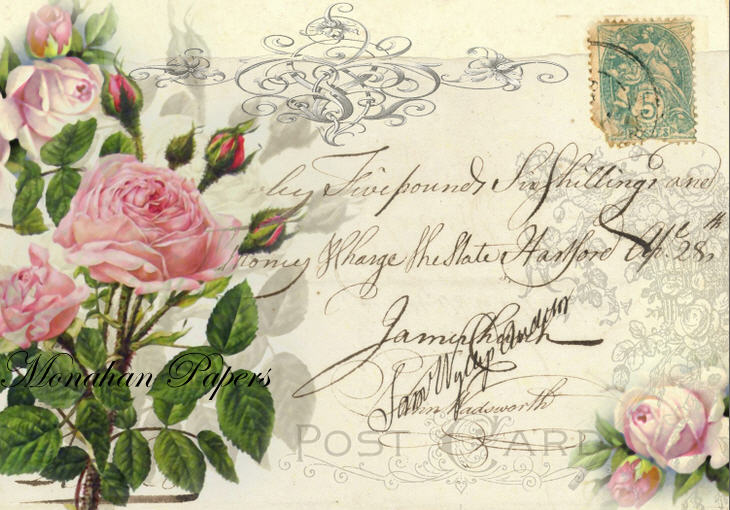 Five pounds Six shillings and
money & charge the State Hartford Apl. 28th
James Church
Sam Wyllys
Wadsworth
Monahan Papers
POST CARD